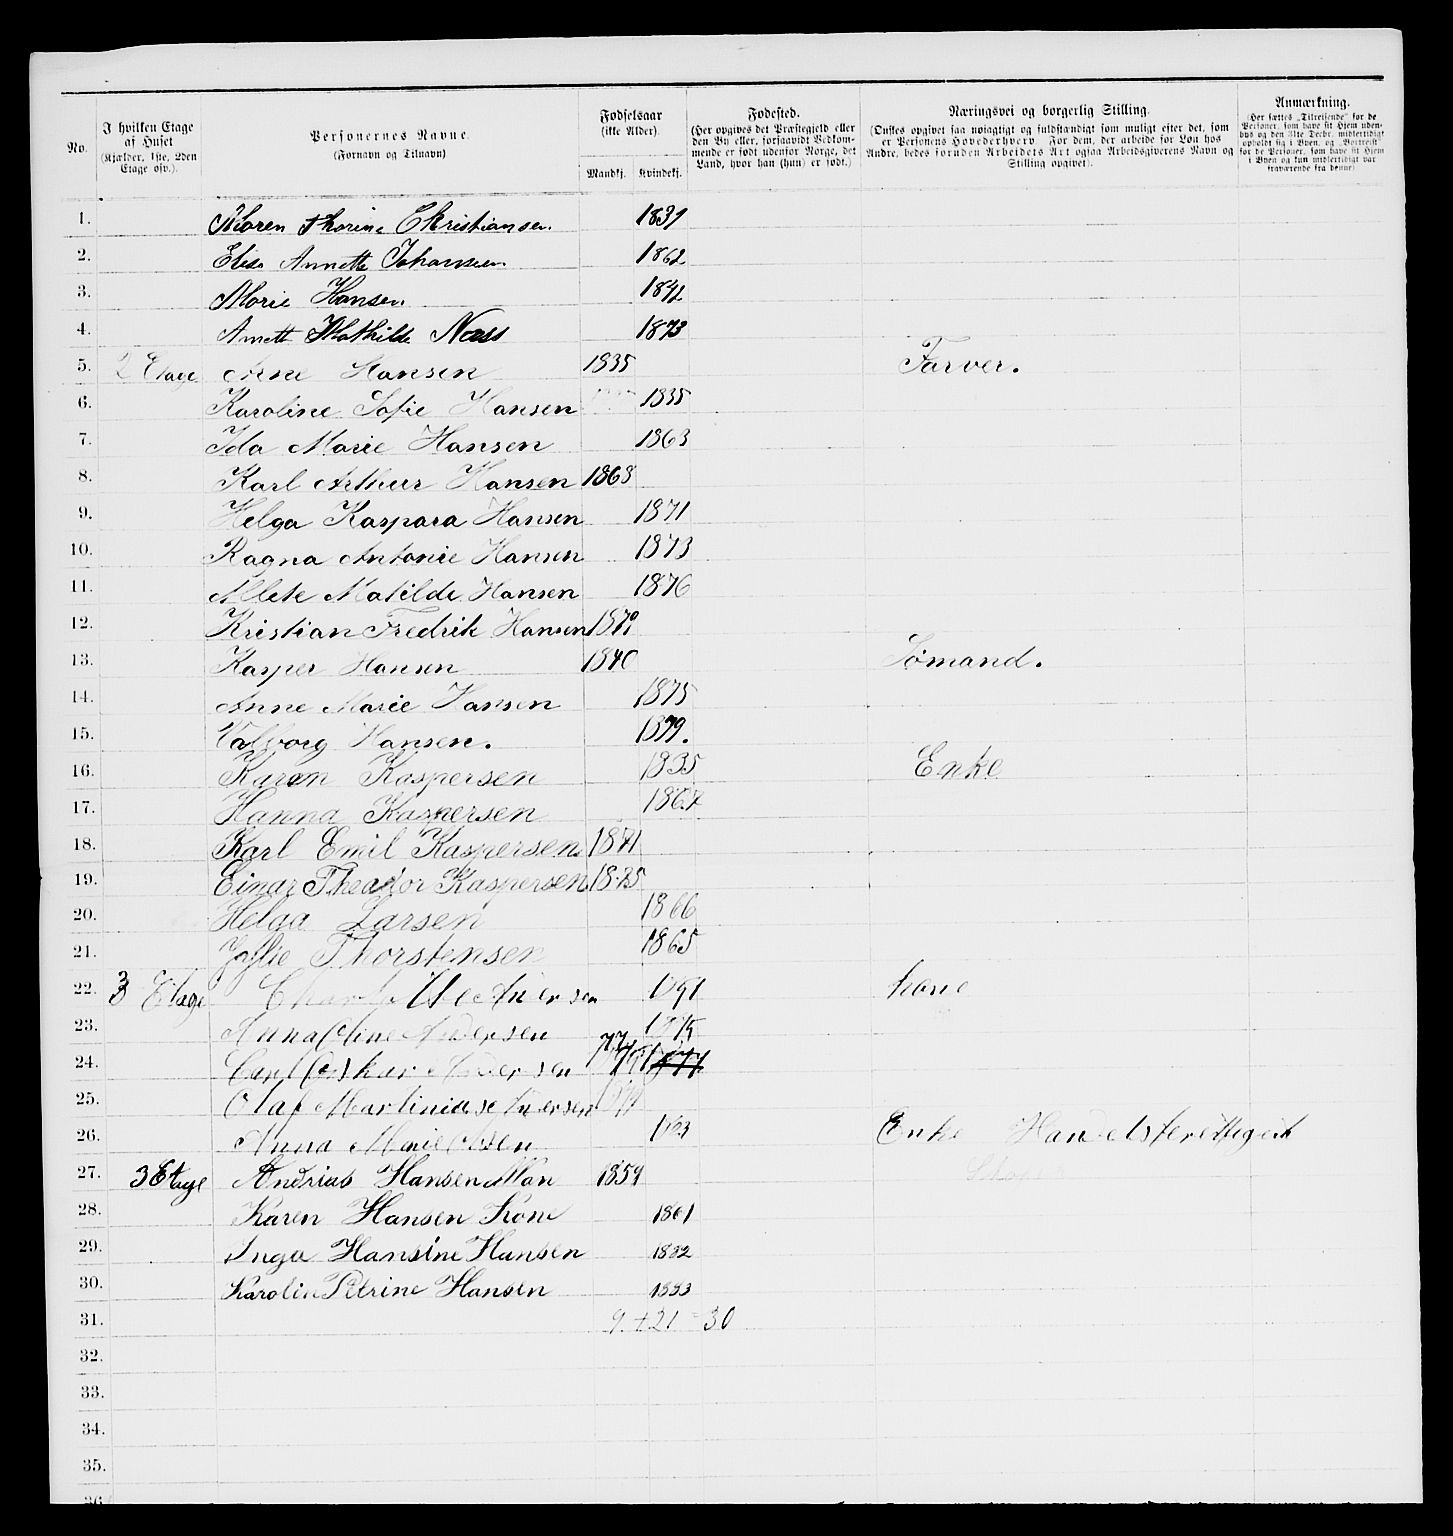 No.
I hvilken Etage af Huset (Kjælder, 1ste, 2den Etage osv.).
Personernes Navne. (Fornavn og Tilnavn)
Fødselsaar (ikke Alder).
Mandkj. Kvindekj.
Fødested. (Her opgives det Præstegjeld eller den By eller, forsaavidt Vedkommende er født udenfor Norge, det Land, hvor han (hun) er født.)
Næringsvei og borgerlig Stilling. (Ønskes opgivet saa nøiagtigt og fuldstændigt som muligt efter det, som er Personens Hovederhverv. For dem, der arbeide for Løn hos Andre, bedes foruden Arbeidets Art ogsaa Arbeidsgiverens Navn og Stilling opgivet).
Anmærkning. (Her sættes „Tilreisende“ for de Personer, som have sit Hjem udenbys og den 31te Decbr. midlertidigt opholdt sig i Byen, og „Bortreist“ for de Personer, som have sit Hjem i Byen og kun midlertidigt var fraværende fra denne)
1. Maren Thorine Christiansen. 1831
2. Elise Annette Johansen. 1862
3. Marie Hansen.
4. Anett Mathilde Næss 1873
5. 2 Etage Arne Hansen 1835 Farver.
6. Karoline Sofie Hansen 1835
7. Ida Marie Hansen 1863
8. Karl Arthur Hansen 1868
9. Helga Kaspara Hansen 1871
10. Ragna Antonie Hansen 1873
11. Milete Matilde Hansen 1876
12. Kristian Fredrik Hansen
13. Kasper Hansen 1840 Sømand.
14. Anne Marie Hansen 1875
15. Valborg Hansen. 1879.
16. Karen Kaspersen 1835 Enke
17. Hanna Kaspersen
18. Karl Emil Kaspersen 1871
19. Einar Theodor Kaspersen 1875
20. Helga Larsen 1866
21. Thorstensen 1865
22. 3 Etage
23. Anna Oline Andersen
24. Carl Oskar Andersen
25. Olaf Martiniuse Andersen
26. Anna Marie Enke
27. 3 Etage Andrias Hansen Man
28. Karen Hansen Kone 1861
29. Inga Hansine Hansen 1882
30. Karolin Petrine Hansen 1883
31. 9 + 21 = 30
32.
33.
34.
35.
36.